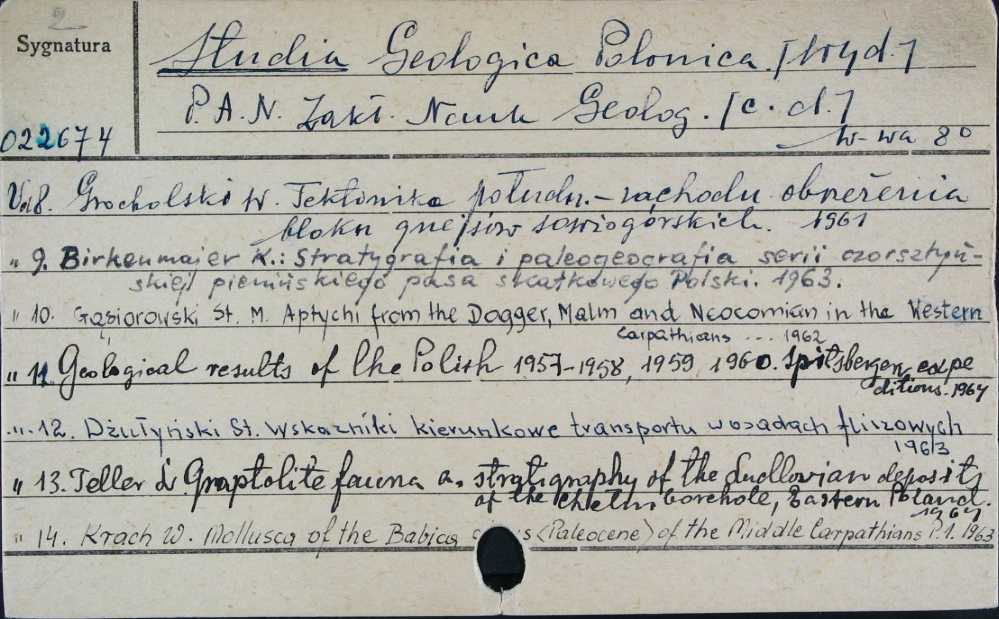 2
Sygnatura
Studia Geologica Polonica. [Wyd.]
P.A.N. Zakł. Nauk Geolog. [c.d.]
022674
W-wa 80
Vol 8. Grocholski W. Tektonika połudn.-zachodu obrzeżenia
bloku gnejsów sowiogórskich. 1961
" 9. Birkenmajer K.: Stratygrafia i paleogeografia serii czorsztyń-
skiej pienińskiego pasa skałkowego Polski. 1963.
" 10. Gąsiorowski St. M. Aptychi from the Dogger, Malm and Neocomian in the Western
Carpathians ... 1962
" 11. Geological results of the Polish 1957-1958, 1959, 1960. Spitsbergen expe
ditions. 1964
" 12. Dżułyński St. Wskaźniki kierunkowe transportu w osadach fliszowych
1963
" 13. Teller L. Graptolite fauna a. stratigraphy of the Ludlovian deposits
of the Chełm borehole, Eastern Poland.
1964
" 14. Krach W. Mollusca of the Babica (Paleocene) of the Middle Carpathians P.1. 1963